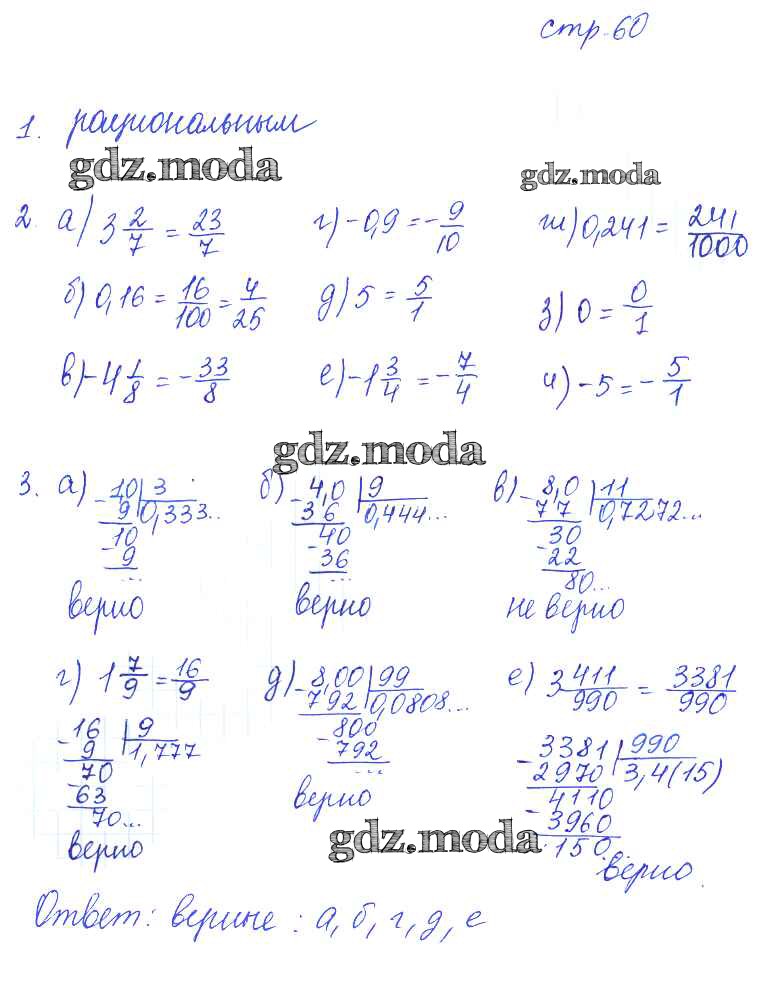 стр. 60
1. рациональным
gdz.moda
gdz.moda
2. а) 3 2/7 = 23/7 г) -0,9 = -9/10 ж) 0,241 = 241/1000
б) 0,16 = 16/100 = 4/25 д) 5 = 5/1 з) 0 = 0/1
в) -4 1/8 = -33/8 е) -1 3/4 = -7/4 и) -5 = -5/1
gdz.moda
3. а) - 10 | 3 б) - 4,0 | 9 в) - 8,0 | 11
9 | 0,333... 36 | 0,444... 77 | 0,7272...
- 10 - 40 - 30
9 36 22
... ... 80...
верно верно не верно
г) 1 7/9 = 16/9 д) - 8,00 | 99 е) 3 411/990 = 3381/990
792 | 0,0808...
- 16 | 9 - 800 - 3381 | 990
9 | 1,777 792 2970 | 3,4(15)
- 70 ... - 4110
63 верно 3960
70... 150
верно верно.
gdz.moda
Ответ: верные: а, б, г, д, е